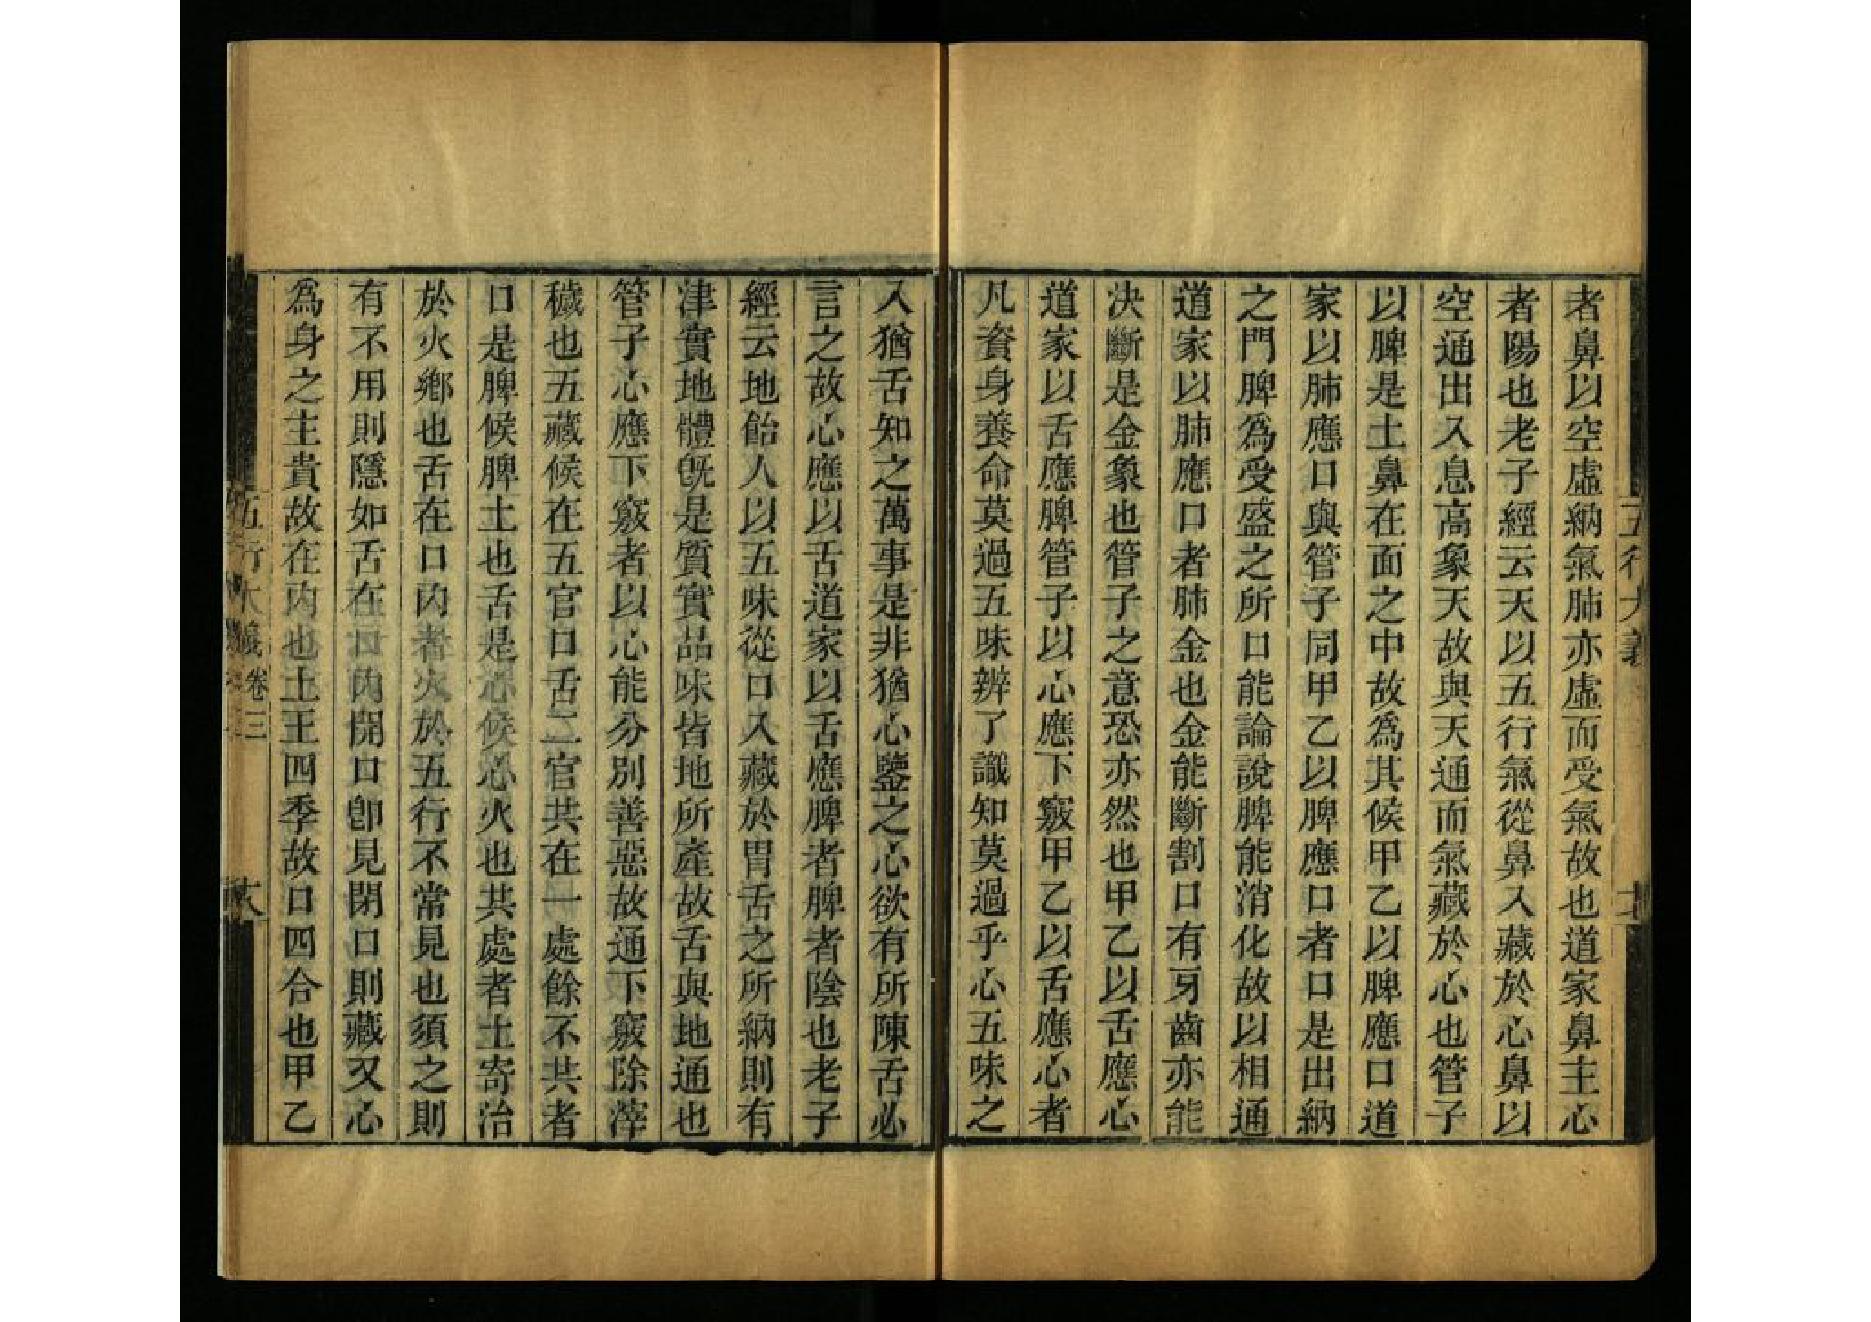 者鼻以空虛納氣肺亦虛而受氣故也道家鼻主心
者陽也老子經云天以五行氣從鼻入藏於心鼻以
空通出入息高象天故與天通而氣藏於心也管子
以脾是土鼻在面之中故為其候甲乙以脾應口道
家以肺應口與管子同甲乙以脾應口者口是出納
之門脾為受盛之所口能論說脾能消化故以相通
道家以肺應口者肺金也金能斷割口有牙齒亦能
決斷是金象也管子之意恐亦然也甲乙以舌應心
道家以舌應脾管子以心應下竅甲乙以舌應心者
凡資身養命莫過五味辨了識知莫過乎心五味之
入猶舌知之萬事是非猶心鑒之心欲有所陳舌必
言之故心應以舌道家以舌應脾者脾者陰也老子
經云地飴人以五味從口入藏於胃舌之所納則有
津實地體旣是質實品味皆地所產故舌與地通也
管子心應下竅者以心能分別善惡故通下竅除滓
穢也五藏候在五官口舌二官共在一處餘不共者
口是脾候脾土也舌是心候心火也共處者土寄治
於火鄉也舌在口內者火於五行不常見也須之則
有不用則隱如舌在口內開口卽見閉口則藏又心
為身之主貴故在內也土王四季故口四合也甲乙
五行大義 卷三